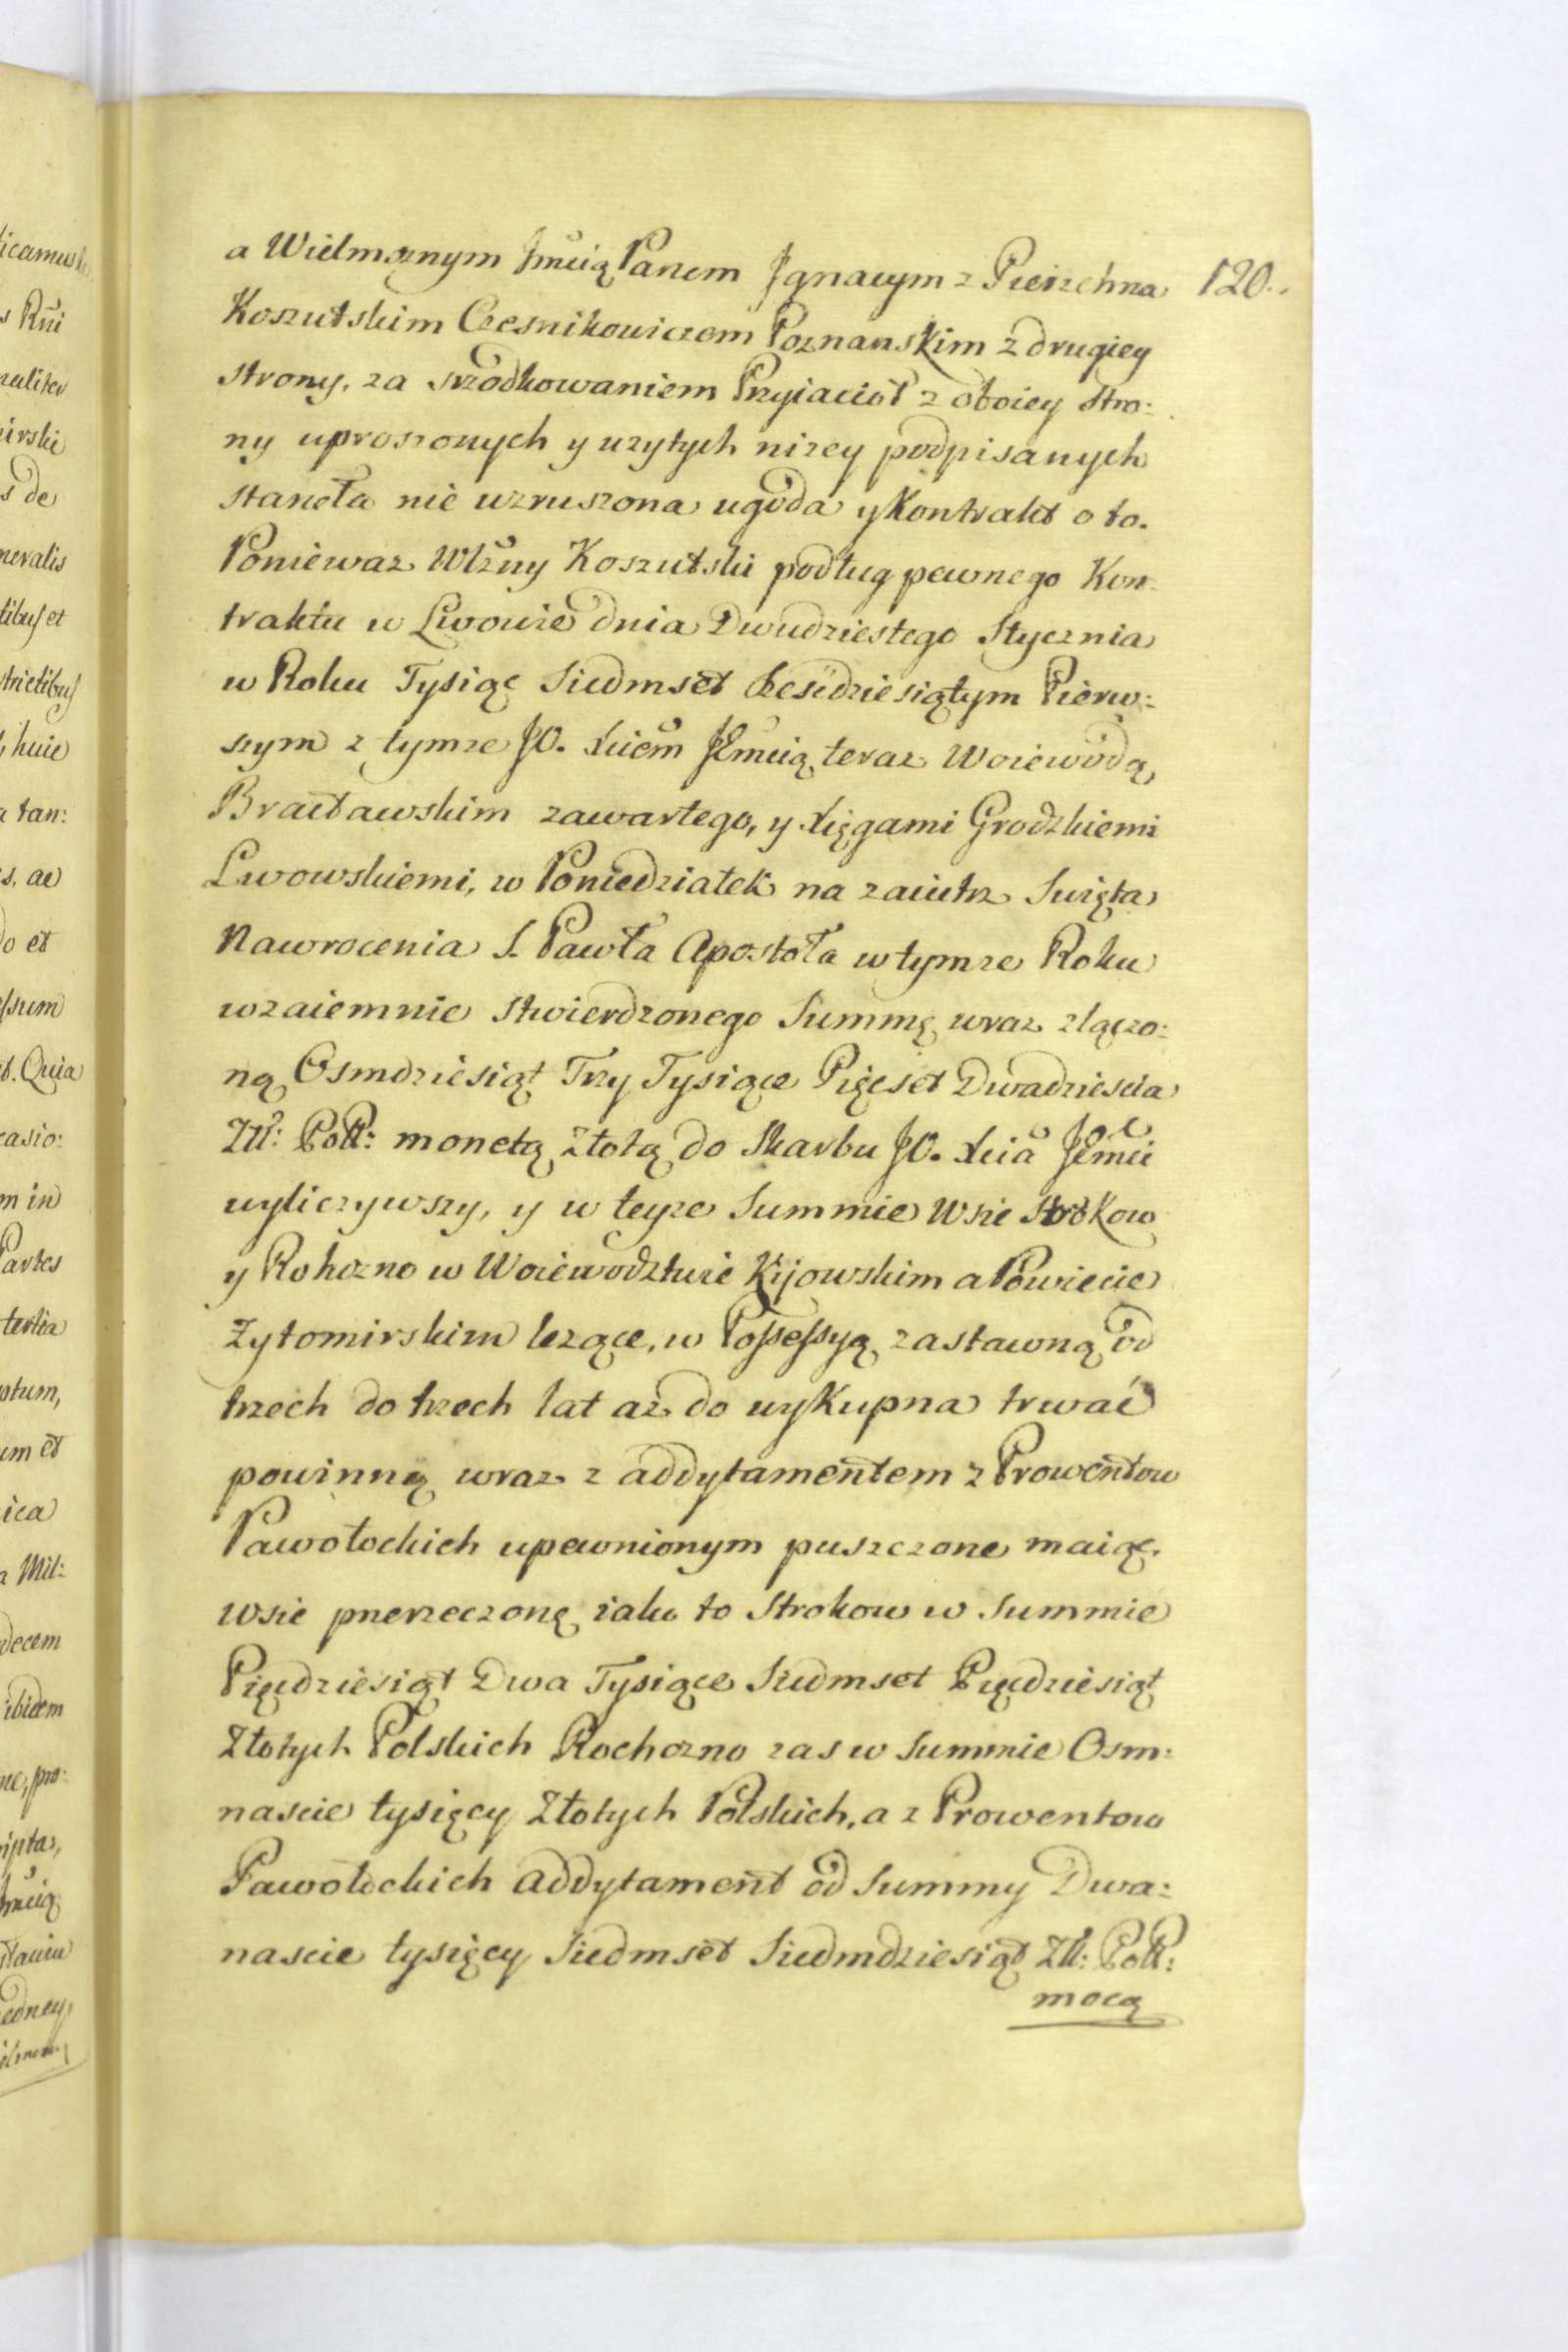 120..
a Wielmoznym Jmcią Panem Jgnacym z Pierzchna
Koszutskim Czesnikowiczem Poznanskim z drugiey
strony, za srzodkowaniem Przyiacioł z oboiey stro:
ny uproszonych y uzytych nizey podpisanych
staneła nie wzruszona ugoda y Kontrakt o to.
Poniewaz Wlzny Koszutski podług pewnego Kon:
traktu w Lwowie dnia Dwudziestego Stycznia
w Roku Tysiąc Siedmset Szesćdziesiątym Pierw:
szym z tymze JO. Xciem JEmcią teraz Woiewodą,
Bracławskim zawartego, y Xięgami Grodzkiemi
Lwowskiemi, w Poniedziałek na zaiutrz Swięta
Nawrocenia S. Pawła Apostoła w tymze Roku
wzaiemnie stwierdzonego Summę wraz złączo:
ną Osmdziesiąt Trzy Tysiące Pięcset Dwadziescia
Złł: Poll: monetą Złotą do Skarbu JO. Xcia JEmci
wyliczywszy, y w teyze Summie Wsie Strokow
y Rohozno w Woiewodztwie Kijowskim a Powiecie
Zytomirskim lezące, w Possessyą zastawną od
trzech do trzech lat az do wykupna trwać
powinną wraz z addytamentem z Prowentow
Pawołockich upewnionym puszczone maiąc.
wsie pnerzeczonę iako to Strokow w Summie
Pięćdziesiąt Dwa Tysiące Siedmset Pięcdziesiąt
Złotych Polskich Rochozno zas w Summie Osm:
nascie tysięcy Złotych Polskich, a z Prowentow
Pawołockich addytament od Summy Dwa:
nascie tysięcy Siedmset Siedmdziesiąt Złł: Poll:
mocą